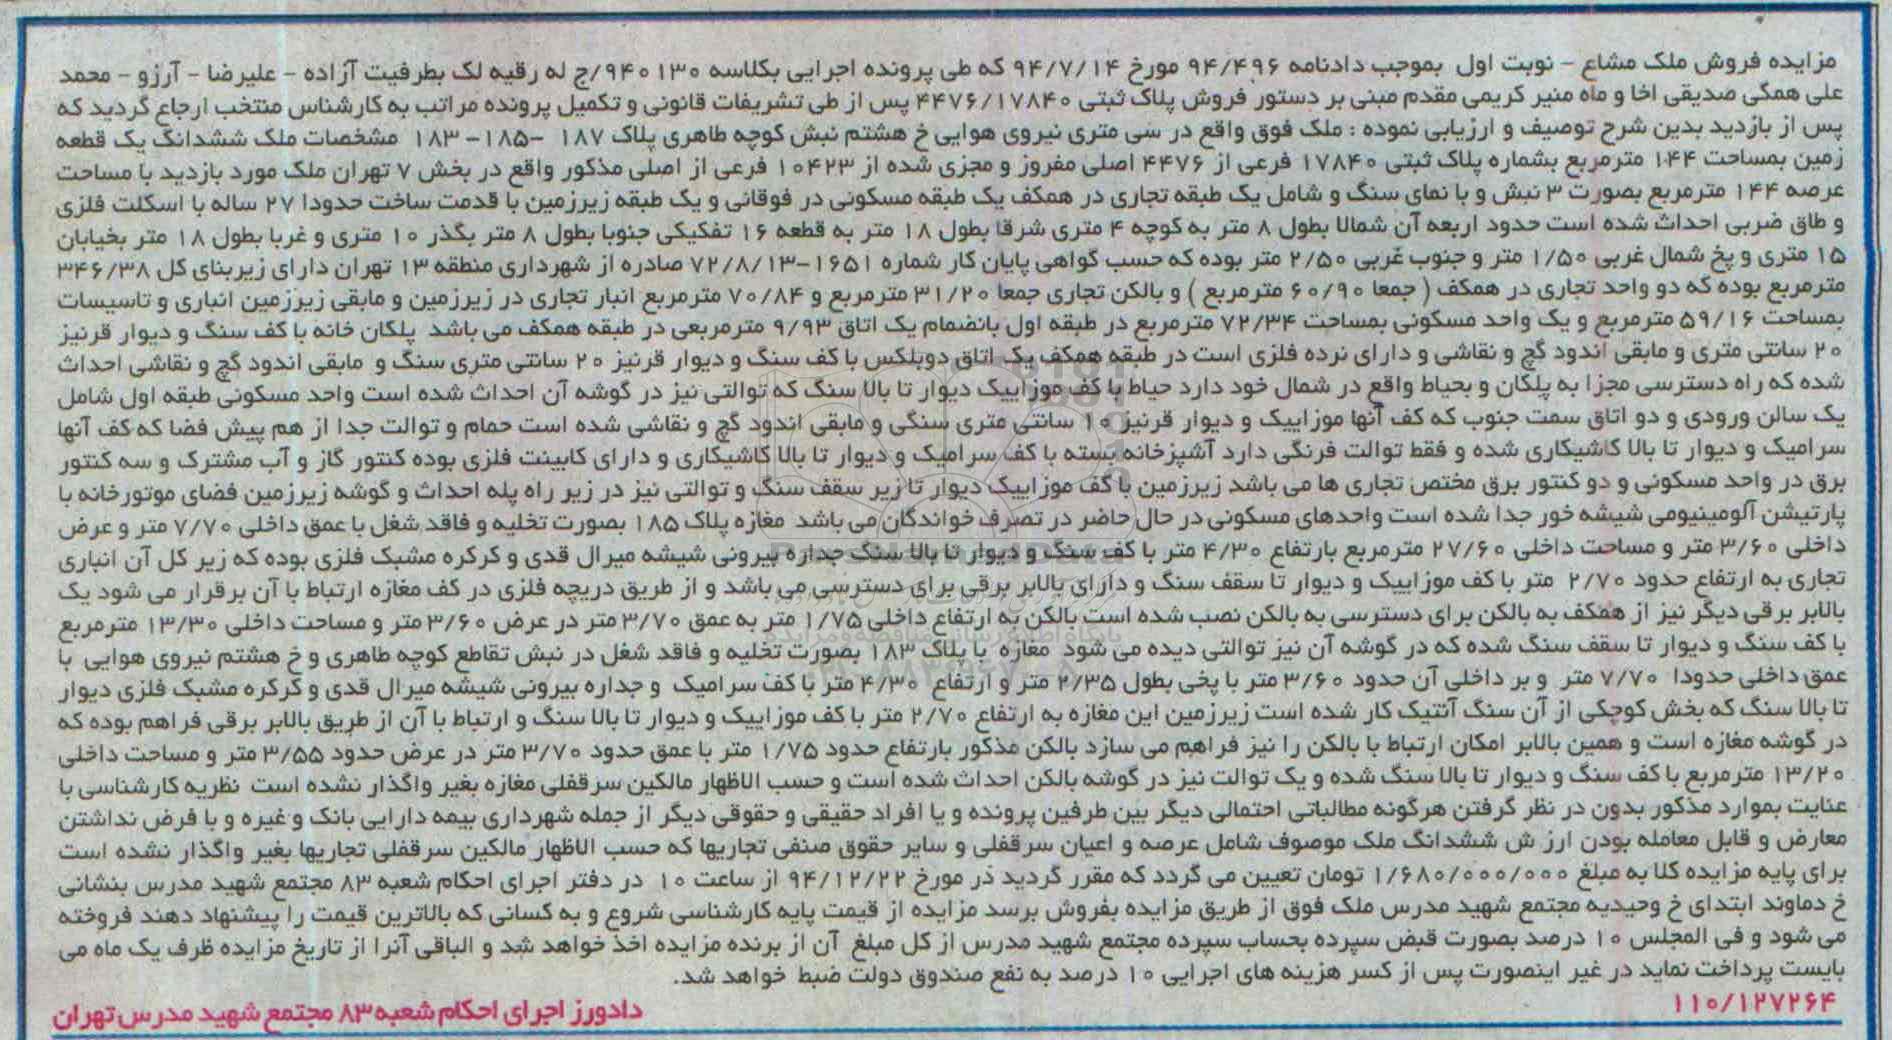 مزایده فروش ملک مشاع - نوبت اول بموجب دادنامه ۹۴/۴۹۶ مورخ ۹۴/۷/۱۴ که طی پرونده اجرایی بکلاسه ۹۴۰۱۳۰/ج له رقیه لک بطرفیت آزاده - علیرضا - آرزو - محمد
علی همگی صدیقی اخا و ماه منیر کریمی مقدم مبنی بر دستور فروش پلاک ثبتی ۴۴۷۶/۱۷۸۴۰ پس از طی تشریفات قانونی و تکمیل پرونده مراتب به کارشناس منتخب ارجاع گردید که
پس از بازدید بدین شرح توصیف و ارزیابی نموده : ملک فوق واقع در سی متری نیروی هوایی خ هشتم نبش کوچه طاهری پلاک ۱۸۷ -۱۸۵- ۱۸۳ مشخصات ملک ششدانگ یک قطعه
زمین بمساحت ۱۴۴ مترمربع بشماره پلاک ثبتی ۱۷۸۴۰ فرعی از ۴۴۷۶ اصلی مفروز و مجزی شده از ۱۰۴۲۳ فرعی از اصلی مذکور واقع در بخش ۷ تهران ملک مورد بازدید با مساحت
عرصه ۱۴۴ مترمربع بصورت ۳ نبش و با نمای سنگ و شامل یک طبقه تجاری در همکف یک طبقه مسکونی در فوقانی و یک طبقه زیرزمین با قدمت ساخت حدودا ۲۷ ساله با اسکلت فلزی
و طاق ضربی احداث شده است حدود اربعه آن شمالا بطول ۸ متر به کوچه ۴ متری شرقا بطول ۱۸ متر به قطعه ۱۶ تفکیکی جنوبا بطول ۸ متر بگذر ۱۰ متری و غربا بطول ۱۸ متر بخیابان
۱۵ متری و پخ شمال غربی ۱/۵۰ متر و جنوب غربی ۲/۵۰ متر بوده که حسب گواهی پایان کار شماره ۱۶۵۱-۷۲/۸/۱۳ صادره از شهرداری منطقه ۱۳ تهران دارای زیربنای کل ۳۴۶/۳۸
مترمربع بوده که دو واحد تجاری در همکف ( جمعا ۶۰/۹۰ مترمربع ) و بالکن تجاری جمعا ۳۱/۲۰ مترمربع و ۷۰/۸۴ مترمربع انبار تجاری در زیرزمین و مابقی زیرزمین انباری و تاسیسات
بمساحت ۵۹/۱۶ مترمربع و یک واحد مسکونی بمساحت ۷۲/۳۴ مترمربع در طبقه اول بانضمام یک اتاق ۹/۹۳ مترمربعی در طبقه همکف می باشد پلکان خانه با کف سنگ و دیوار قرنیز
۲۰ سانتی متری و مابقی اندود گچ و نقاشی و دارای نرده فلزی است در طبقه همکف یک اتاق دوبلکس با کف سنگ و دیوار قرنیز ۲۰ سانتی متری سنگ و مابقی اندود گچ و نقاشی احداث
شده که راه دسترسی مجزا به پلکان و بحیاط واقع در شمال خود دارد حیاط با کف موزاییک دیوار تا بالا سنگ که توالتی نیز در گوشه آن احداث شده است واحد مسکونی طبقه اول شامل
یک سالن ورودی و دو اتاق سمت جنوب که کف آنها موزاییک و دیوار قرنیز ۱۰ سانتی متری سنگی و مابقی اندود گچ و نقاشی شده است حمام و توالت جدا از هم پیش فضا که کف آنها
سرامیک و دیوار تا بالا کاشیکاری شده و فقط توالت فرنگی دارد آشپزخانه بسته با کف سرامیک و دیوار تا بالا کاشیکاری و دارای کابینت فلزی بوده کنتور گاز و آب مشترک و سه کنتور
برق در واحد مسکونی و دو کنتور برق مختص تجاری ها می باشد زیرزمین با کف موزاییک دیوار تا زیر سقف سنگ و توالتی نیز در زیر راه پله احداث و گوشه زیرزمین فضای موتورخانه با
پارتیشن آلومینیومی شیشه خور جدا شده است واحدهای مسکونی در حال حاضر در تصرف خواندگان می باشد مغازه پلاک ۱۸۵ بصورت تخلیه و فاقد شغل با عمق داخلی ۷/۷۰ متر و عرض
داخلی ۳/۶۰ متر و مساحت داخلی ۲۷/۶۰ مترمربع بارتفاع ۴/۳۰ متر با کف سنگ و دیوار تا بالا سنگ جداره بیرونی شیشه میرال قدی و کرکره مشبک فلزی بوده که زیر کل آن انباری
تجاری به ارتفاع حدود ۲/۷۰ متر با کف موزاییک و دیوار تا سقف سنگ و دارای بالابر برقی برای دسترسی می باشد و از طریق دریچه فلزی در کف مغازه ارتباط با آن برقرار می شود یک
بالابر برقی دیگر نیز از همکف به بالکن برای دسترسی به بالکن نصب شده است بالکن به ارتفاع داخلی ۱/۷۵ متر به عمق ۳/۷۰ متر در عرض ۳/۶۰ متر و مساحت داخلی ۱۳/۳۰ مترمربع
با کف سنگ و دیوار تا سقف سنگ شده که در گوشه آن نیز توالتی دیده می شود مغازه با پلاک ۱۸۳ بصورت تخلیه و فاقد شغل در نبش تقاطع کوچه طاهری و خ هشتم نیروی هوایی با
عمق داخلی حدودا ۷/۷۰ متر و بر داخلی آن حدود ۳/۶۰ متر با پخی بطول ۲/۳۵ متر و ارتفاع ۴/۳۰ متر با کف سرامیک و جداره بیرونی شیشه میرال قدی و کرکره مشبک فلزی دیوار
تا بالا سنگ که بخش کوچکی از آن سنگ آنتیک کار شده است زیرزمین این مغازه به ارتفاع ۲/۷۰ متر با کف موزاییک و دیوار تا بالا سنگ و ارتباط با آن از طریق بالابر برقی فراهم بوده که
در گوشه مغازه است و همین بالابر امکان ارتباط با بالکن را نیز فراهم می سازد بالکن مذکور بارتفاع حدود ۱/۷۵ متر با عمق حدود ۳/۷۰ متر در عرض حدود ۳/۵۵ متر و مساحت داخلی
۱۳/۲۰ مترمربع با کف سنگ و دیوار تا بالا سنگ شده و یک توالت نیز در گوشه بالکن احداث شده است و حسب الاظهار مالکین سرقفلی مغازه بغیر واگذار نشده است نظریه کارشناسی با
عنایت بموارد مذکور بدون در نظر گرفتن هرگونه مطالباتی احتمالی دیگر بین طرفین پرونده و یا افراد حقیقی و حقوقی دیگر از جمله شهرداری بیمه دارایی بانک و غیره و با فرض نداشتن
معارض و قابل معامله بودن ارز ش ششدانگ ملک موصوف شامل عرصه و اعیان سرقفلی و سایر حقوق صنفی تجاریها که حسب الاظهار مالکین سرقفلی تجاریها بغیر واگذار نشده است
برای پایه مزایده کلا به مبلغ ۱/۶۸۰/۰۰۰/۰۰۰ تومان تعیین می گردد که مقرر گردید در مورخ ۹۴/۱۲/۲۲ از ساعت ۱۰ در دفتر اجرای احکام شعبه ۸۳ مجتمع شهید مدرس بنشانی
خ دماوند ابتدای خ وحیدیه مجتمع شهید مدرس ملک فوق از طریق مزایده بفروش برسد مزایده از قیمت پایه کارشناسی شروع و به کسانی که بالاترین قیمت را پیشنهاد دهند فروخته
می شود و فی المجلس ۱۰ درصد بصورت قبض سپرده بحساب سپرده مجتمع شهید مدرس از کل مبلغ آن از برنده مزایده اخذ خواهد شد و الباقی آنرا از تاریخ مزایده ظرف یک ماه می
بایست پرداخت نماید در غیر اینصورت پس از کسر هزینه های اجرایی ۱۰ درصد به نفع صندوق دولت ضبط خواهد شد.
۱۱۰/۱۲۷۲۶۴
دادورز اجرای احکام شعبه ۸۳ مجتمع شهید مدرس تهران